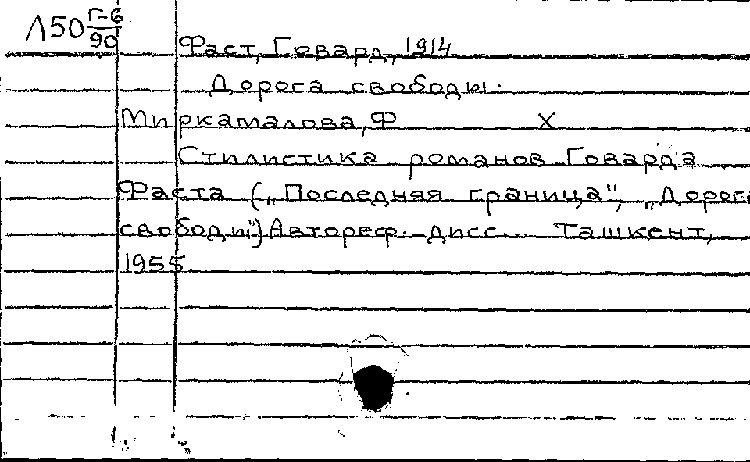 Л50 Г-6/90
Фаст, Говард, 1914
Дорога свободы.
Миркамалова, Ф Х
Стилистика романов Говарда
Фаста („Последняя граница", „Дорога
свободы") Автореф. дисс. Ташкент,
1955